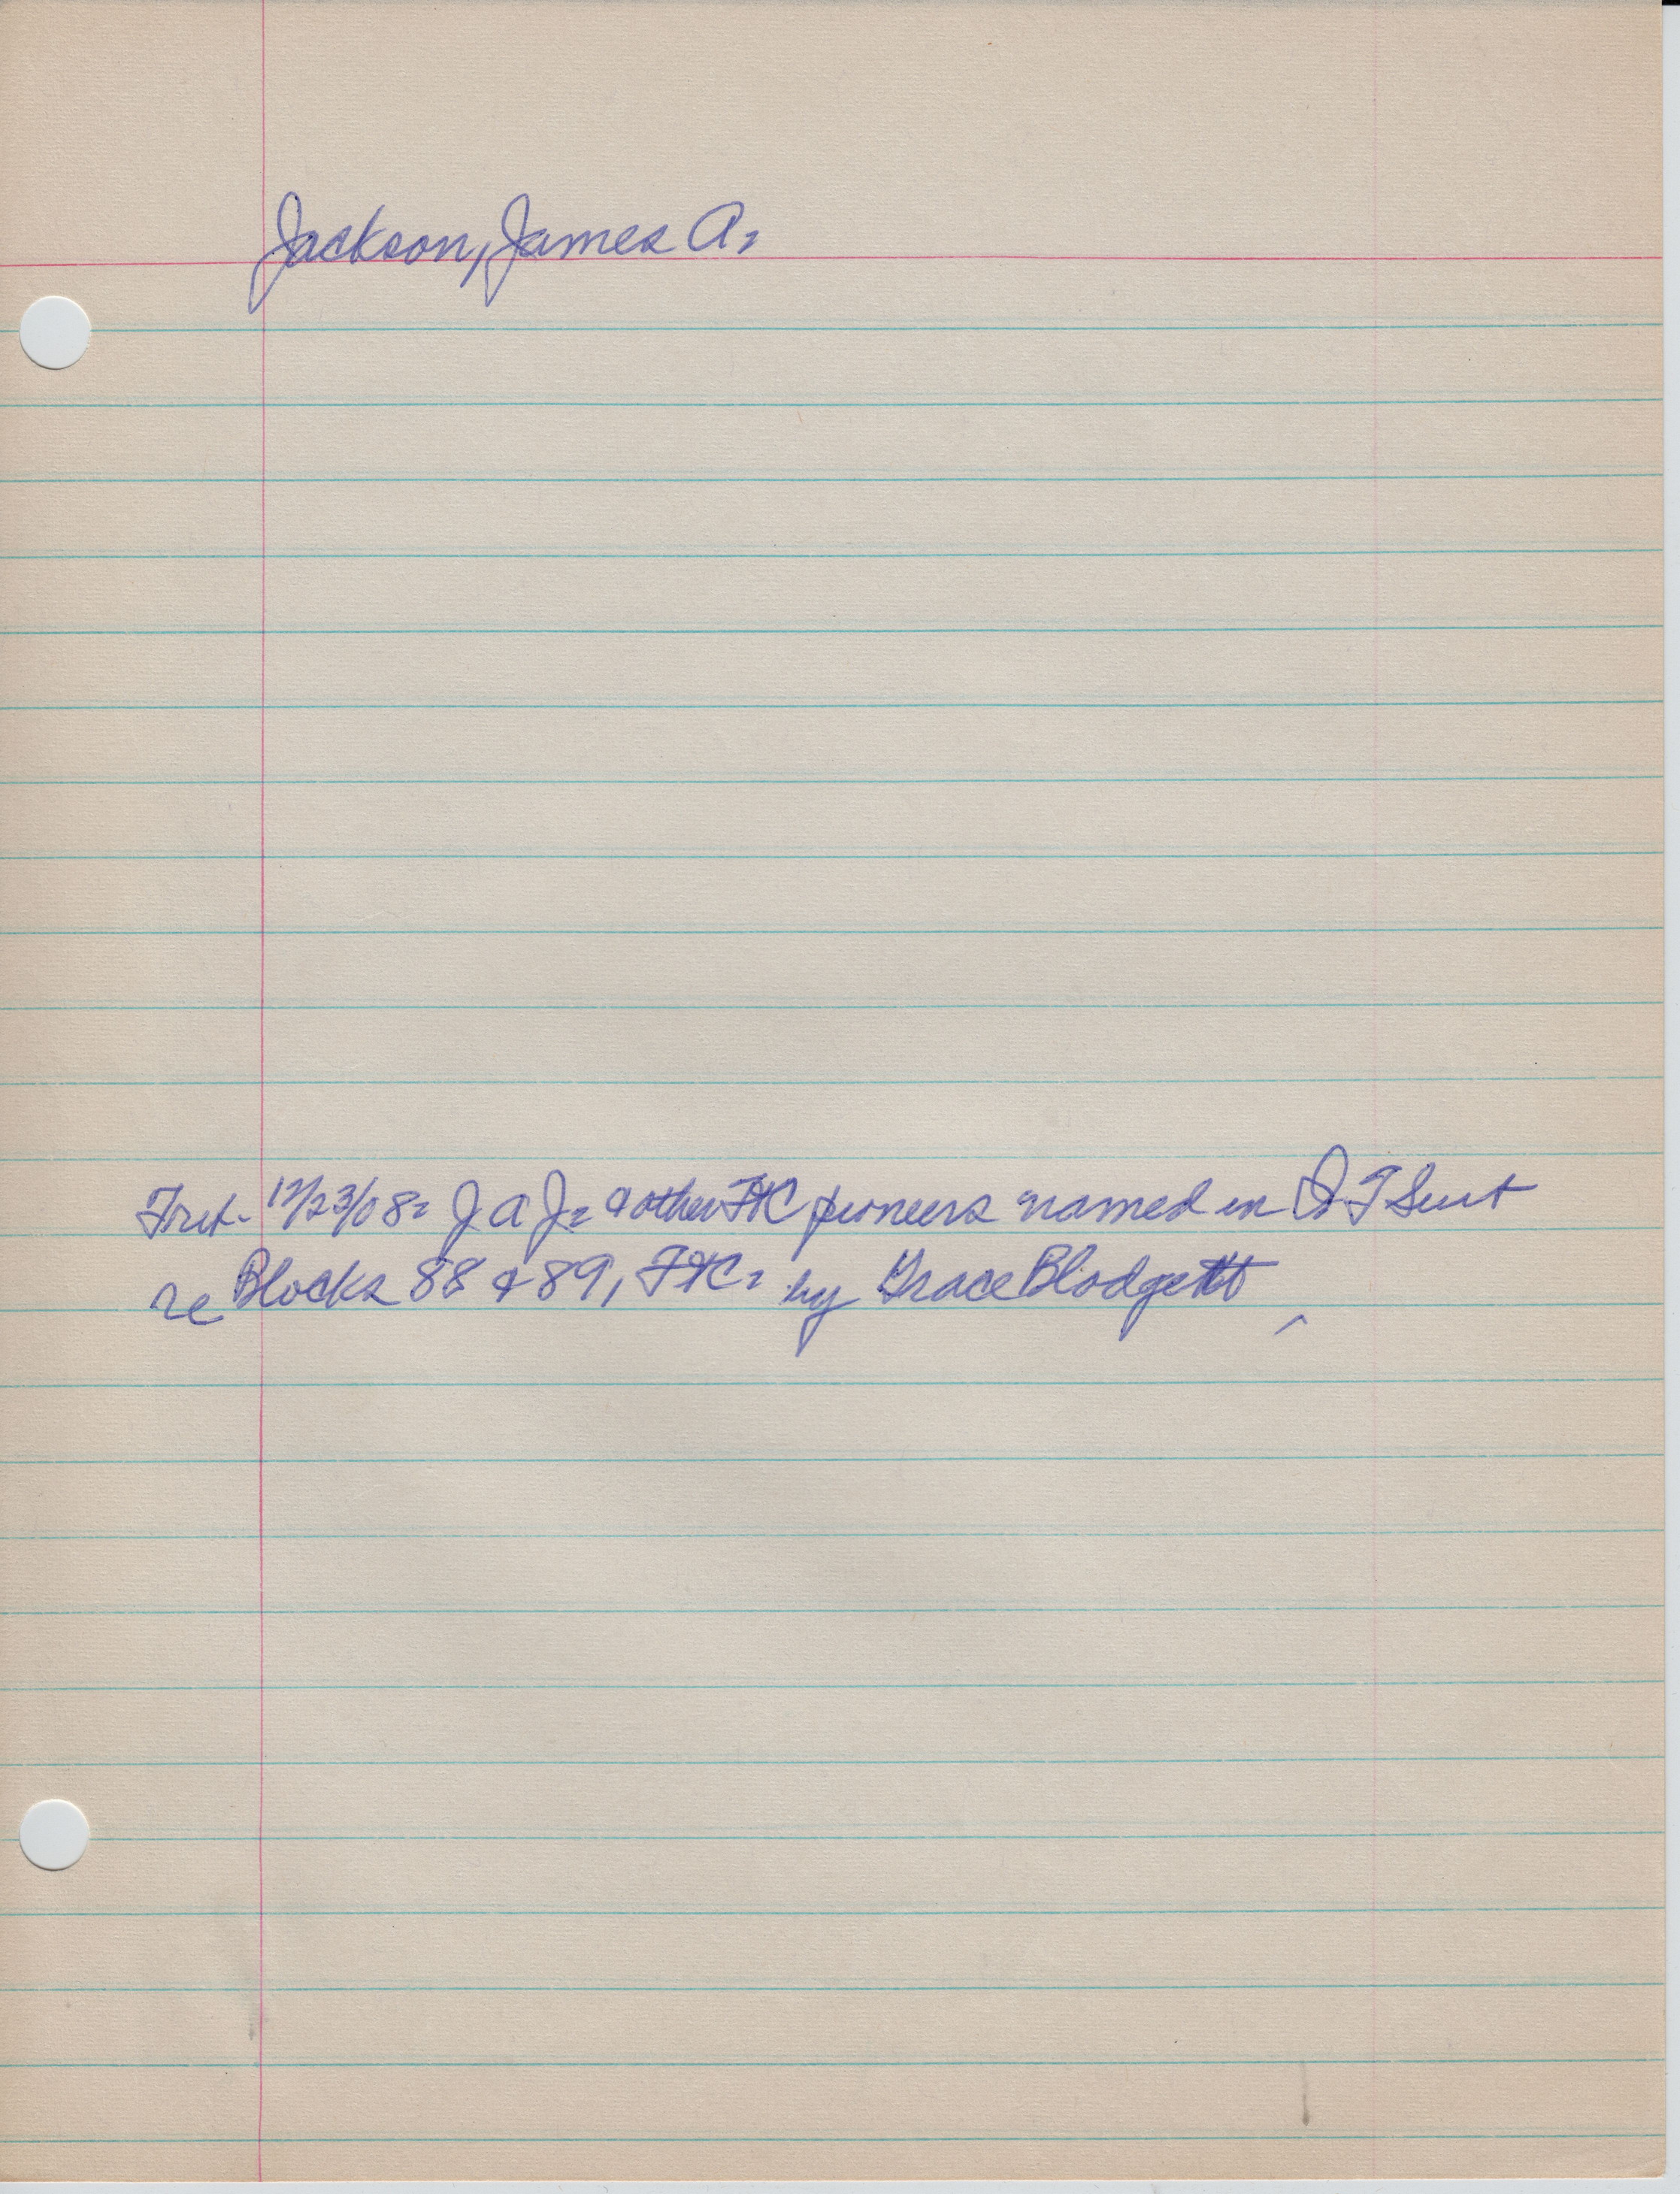 Jackson, James A.
Trib. 12/23/08. J A J. & other FtC pioneers named in QT Suit
re Blocks 88 & 89, FtC. by Grace Blodgett